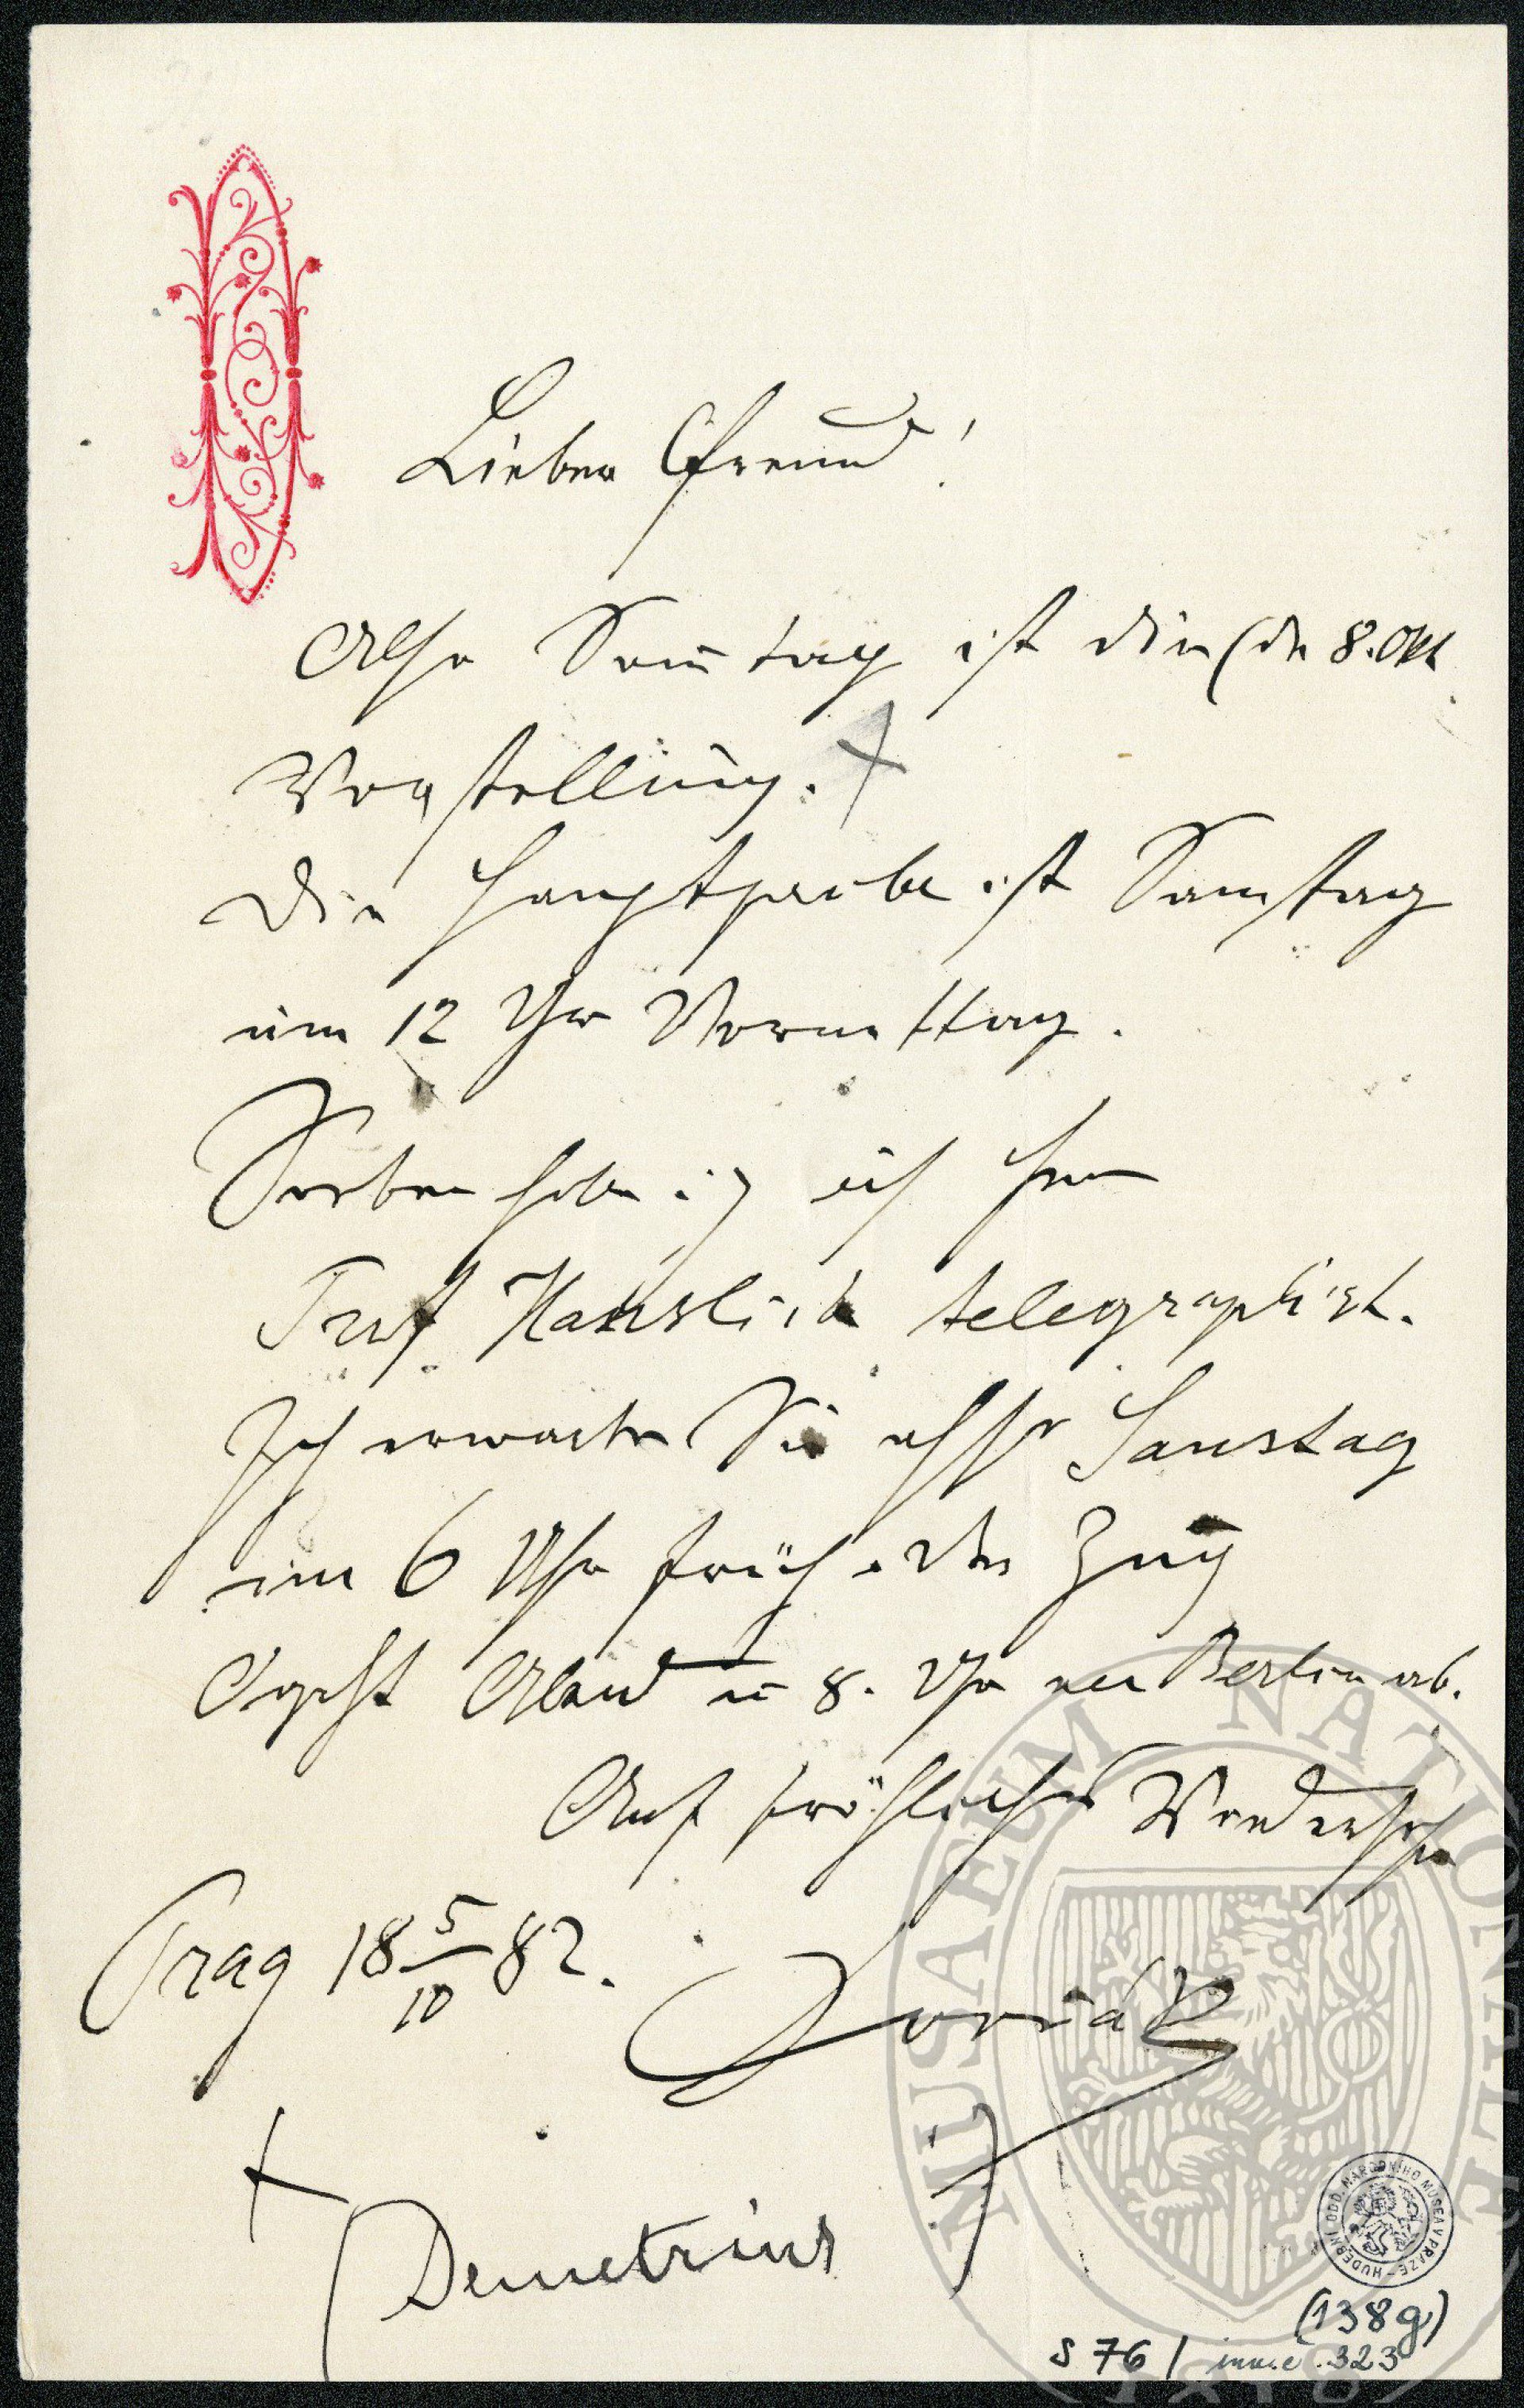 Lieber Freund!
Also Sonntag ist die (den 8. Okt
Vorstellung. +
Die Hauptprobe ist Samstag
um 12 Uhr Vormittag.
Soeben habe ich auch Herrn
Prof Hanslick telegraphirt.
Ich erwarte Sie also Samstag
um 6 Uhr früh. Der Zug
geht Abend um 8. Uhr von Berlin ab.
Auf fröhliches Wiedersehen
Prag 18 5/10 82.
Dvořák
+
(Demetrius)
MUSAEUM NATIONALE
HUDEBNÍ ODD. NÁRODNÍHO MUSEA V PRAZE
(138g)
S 76 / inv. č. 323
1818